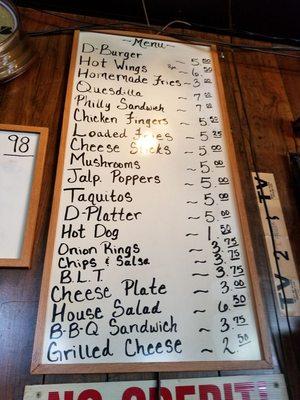 ~ Menu ~
D-Burger ~ 5.00
Hot Wings ~ 6.50
Homemade Fries ~ 3.00
Quesdilla ~ 7.00
Philly Sandwich ~ 7.50
Chicken Fingers ~ 5.50
Loaded Fries ~ 5.25
Cheese Sticks ~ 5.00
Mushrooms ~ 5.00
Jalp. Poppers ~ 5.00
Taquitos ~ 5.00
D-Platter ~ 5.00
Hot Dog ~ 1.50
Onion Rings ~ 3.75
Chips & Salsa ~ 3.75
B.L.T. ~ 3.75
Cheese Plate ~ 3.00
House Salad ~ 6.50
B-B-Q Sandwich ~ 3.75
Grilled Cheese ~ 2.50
98
NO CREDIT!